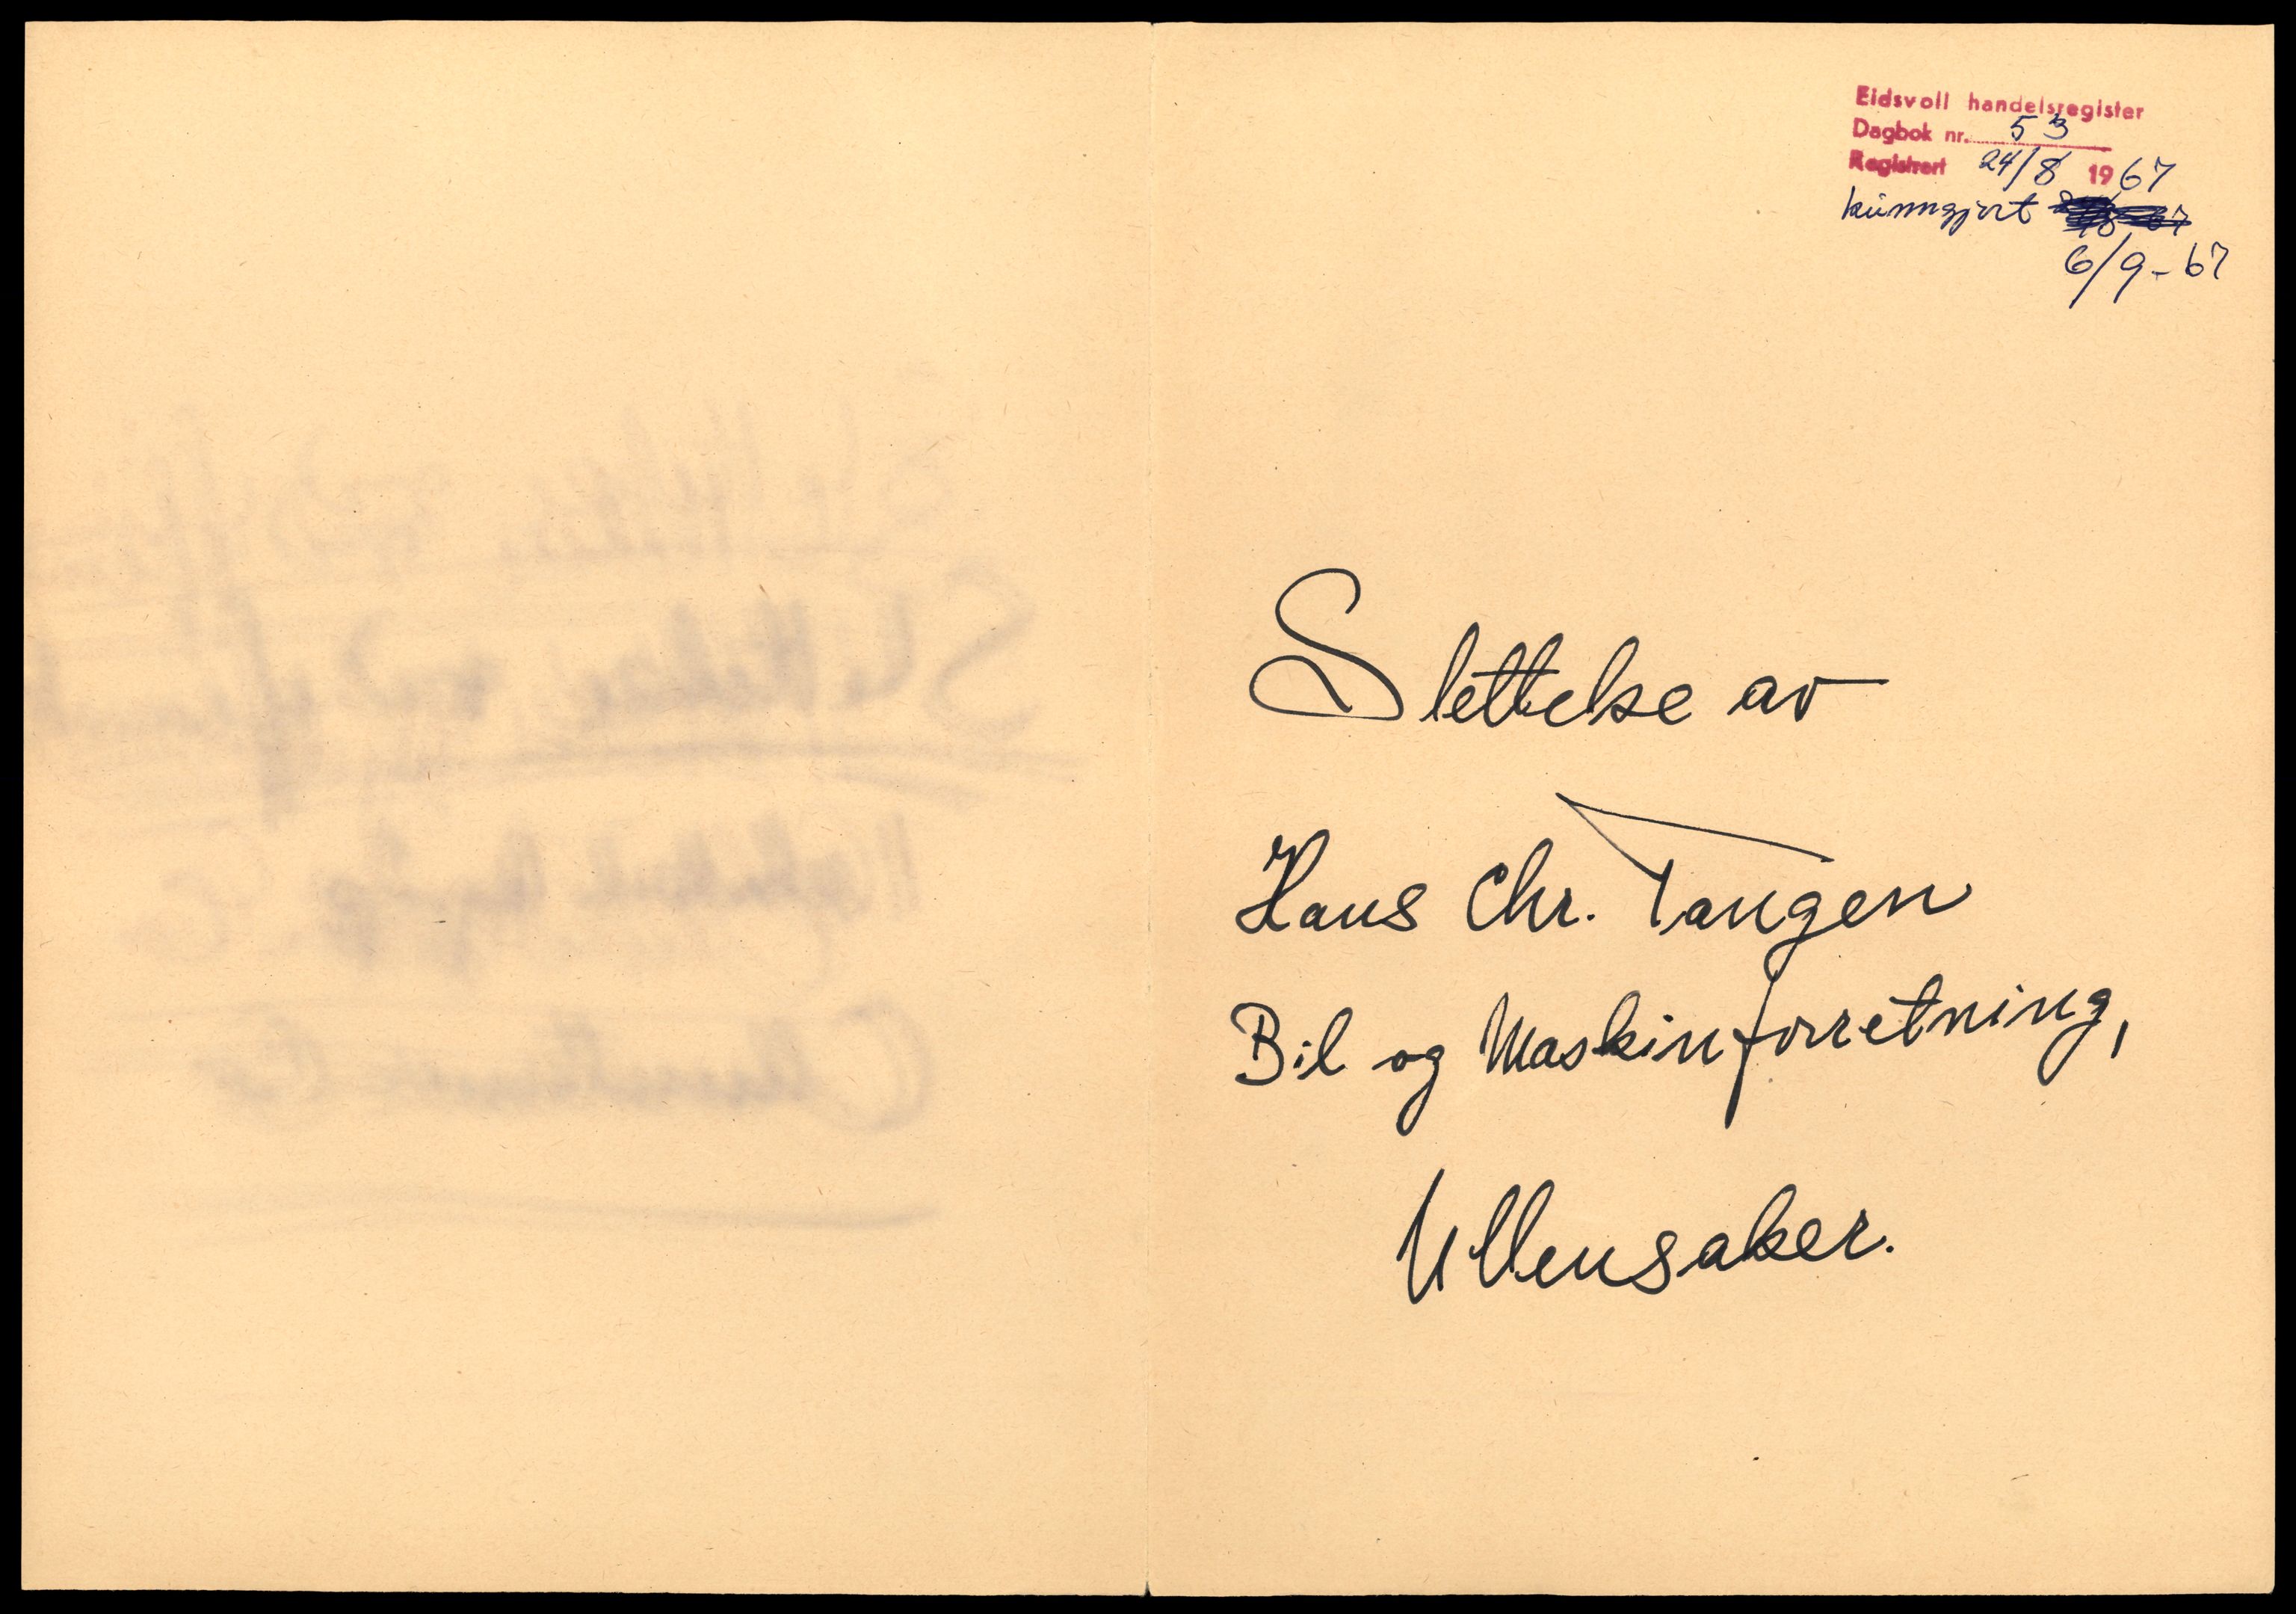 Eidsvoll handelsregister
Dagbok nr. 53
Registrert 24/8 1967
kunngjort
6/9-67
Slettelse av
Hans Chr. Tangen
Bil og Maskinforretning,
Ullensaker.